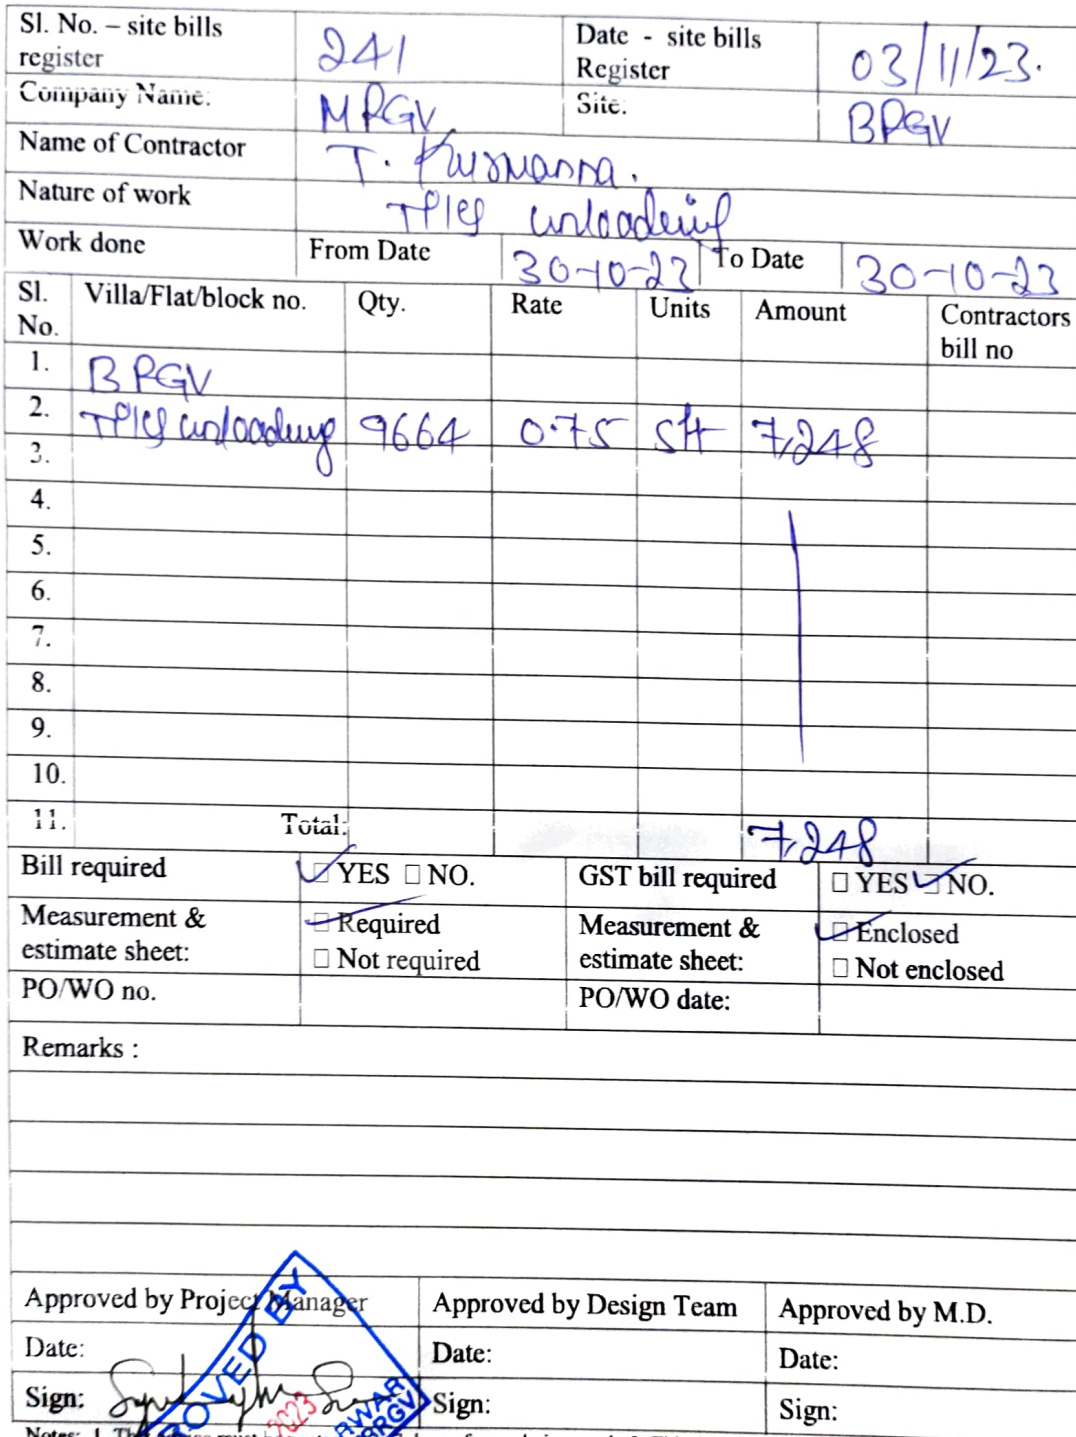 Sl. No. – site bills register 241 Date - site bills Register 03/11/23.
Company Name: MPGV Site: BPGV
Name of Contractor T.
Nature of work Tiles unloading
Work done From Date 30-10-23 To Date 30-10-23
Sl. No. Villa/Flat/block no. Qty. Rate Units Amount Contractors bill no
1. BPGV
2. Tiles unloading 9664 0.75 sft 7,248
3.
4.
5.
6.
7.
8.
9.
10.
11. Total: 7,248
Bill required YES NO. GST bill required YES NO.
Measurement & estimate sheet: Required Not required Measurement & estimate sheet: Enclosed Not enclosed
PO/WO no. PO/WO date:
Remarks :
Approved by Project Manager Approved by Design Team Approved by M.D.
Date: Date: Date:
Sign: Sign: Sign:
2023